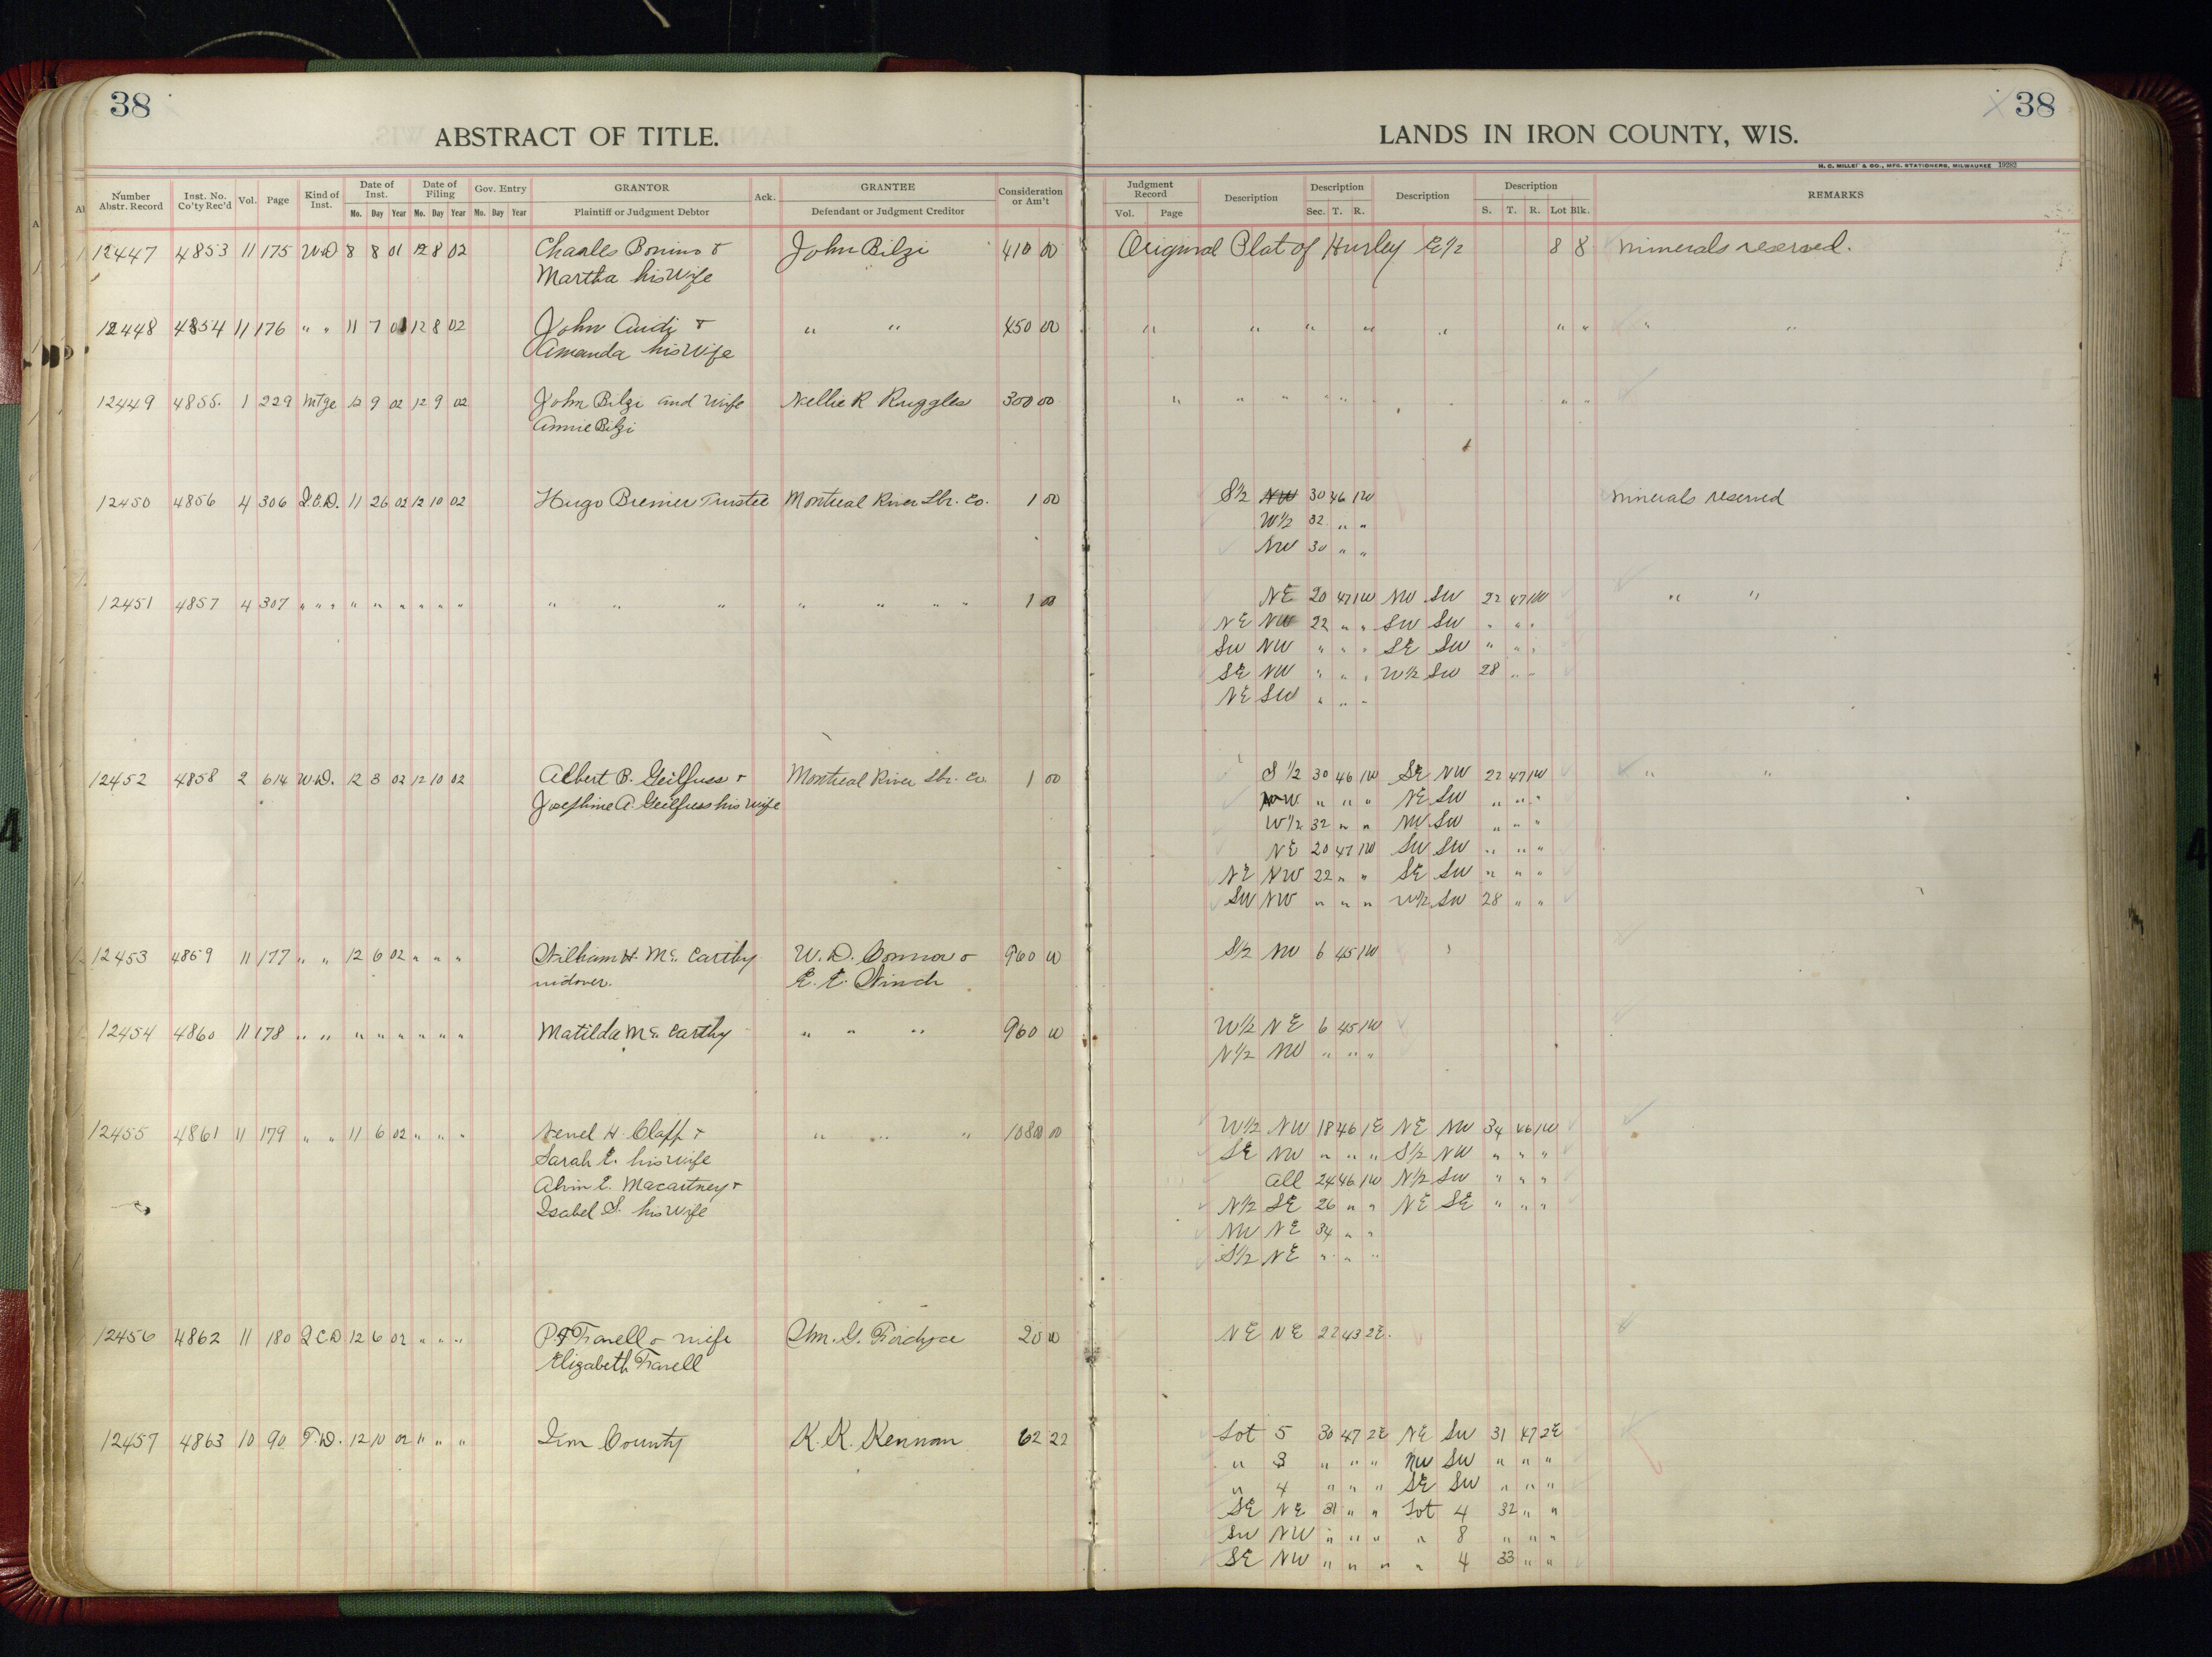 38
ABSTRACT OF TITLE.
LANDS IN IRON COUNTY, WIS.
38
H. C. MILLER & CO., MFG. STATIONERS, MILWAUKEE 19282
Number Abstr. Record | Inst. No. Co'ty Rec'd | Vol. | Page | Kind of Inst. | Date of Inst. Mo. Day Year | Date of Filing Mo. Day Year | Gov. Entry Mo. Day Year | GRANTOR Plaintiff or Judgment Debtor | Ack. | GRANTEE Defendant or Judgment Creditor | Consideration or Am't | Judgment Record Vol. Page | Description | Description Sec. T. R. | Description | Description S. T. R. Lot Blk. | REMARKS
12447 4853 11 175 W.D 8 8 01 12 8 02 Charles Bonino & John Bilzi 410 00 Original Plat of Hurley E½ 8 8 minerals reserved.
Martha his Wife
12448 4854 11 176 " " 11 7 01 12 8 02 John Audi & " " 450 00 " " " " " " " " "
Amanda his Wife
12449 4855. 1 229 Mtge 12 9 02 12 9 02 John Bilzi and Wife Nellie R Ruggles 300 00 " " " " " " "
Annie Bilzi
12450 4856 4 306 Q.C.D. 11 26 02 12 10 02 Hugo Bremer Trustee Montreal River Lbr. Co. 1 00 S½ NW 30 46 1W minerals reserved
W½ 32 " "
NW 30 " "
12451 4857 4 307 " " " " " " " " " " " " " " " " 1 00 NE 20 47 1W NW SW 22 47 1W " "
NE NW 22 " " SW SW " " "
SW NW " " " SE SW " " "
SE NW " " " W½ SW 28 " "
NE SW " " "
12452 4858 2 614 W.D. 12 3 02 12 10 02 Albert B. Geilfuss & Montreal River Lbr. Co. 1 00 S½ 30 46 1W SE NW 22 47 1W " "
Josephine A. Geilfuss his wife NW " " " NE SW " " "
W½ 32 " " NW SW " " "
NE 20 47 1W SW SW " " "
NE NW 22 " " SE SW " " "
SW NW " " " W½ SW 28 " "
12453 4859 11 177 " " 12 6 02 " " " William H. McCarthy W. D. Connor & 960 00 S½ NW 6 45 1W
widower. E. E. Winch
12454 4860 11 178 " " " " " " " " Matilda McCarthy " " " 960 00 W½ NE 6 45 1W
N½ NW " " "
12455 4861 11 179 " " 11 6 02 " " " H. Clapp & " " " 10800 00 W½ NW 18 46 1E NE NW 34 46 1W
Sarah E. his wife SE NW " " " S½ NW " " "
Alvin E. Macartney & All 24 46 1W N½ SW " " "
Isabel S. his wife N½ SE 26 " " NE SE " " "
NW NE 34 " "
S½ NE " " "
12456 4862 11 180 Q C D 12 6 02 " " " & wife Wm. G. Fordyce 20 00 NE NE 22 43 2E.
Elizabeth
12457 4863 10 90 T.D. 12 10 02 " " " Iron County K. K. Kennan 62 22 Lot 5 30 47 2E NE SW 31 47 2E
" 3 " " " NW SW " " "
" 4 " " " SE SW " " "
SE NE 31 " " Lot 4 32 " "
SW NW " " " " 8 " " "
SE NW " " " " 4 33 " "